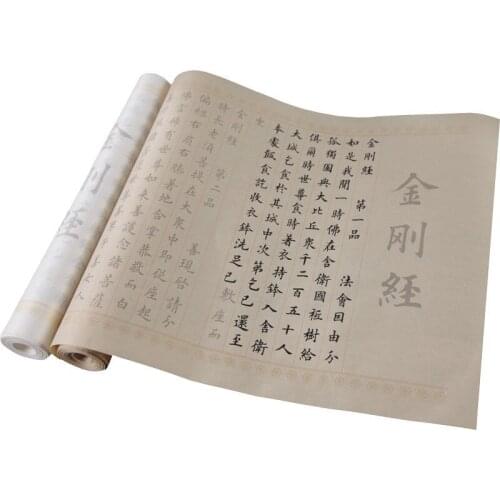 金剛経
金剛経 第一品 法會因由分
如是我聞一時佛在舍衛國祇樹給
孤獨園與大比丘衆千二百五十人
俱爾時世尊食時著衣持鉢入舍衛
大城乞食於其城中次第乞已還至
本處飯食訖收衣鉢洗足已敷座而
坐
金剛経 第二品 善現啟請分
時長老須菩提在大衆中即從座起
偏袒右肩右膝著地合掌恭敬而白
佛言希有世尊如來善護念諸菩薩
女人
金剛経